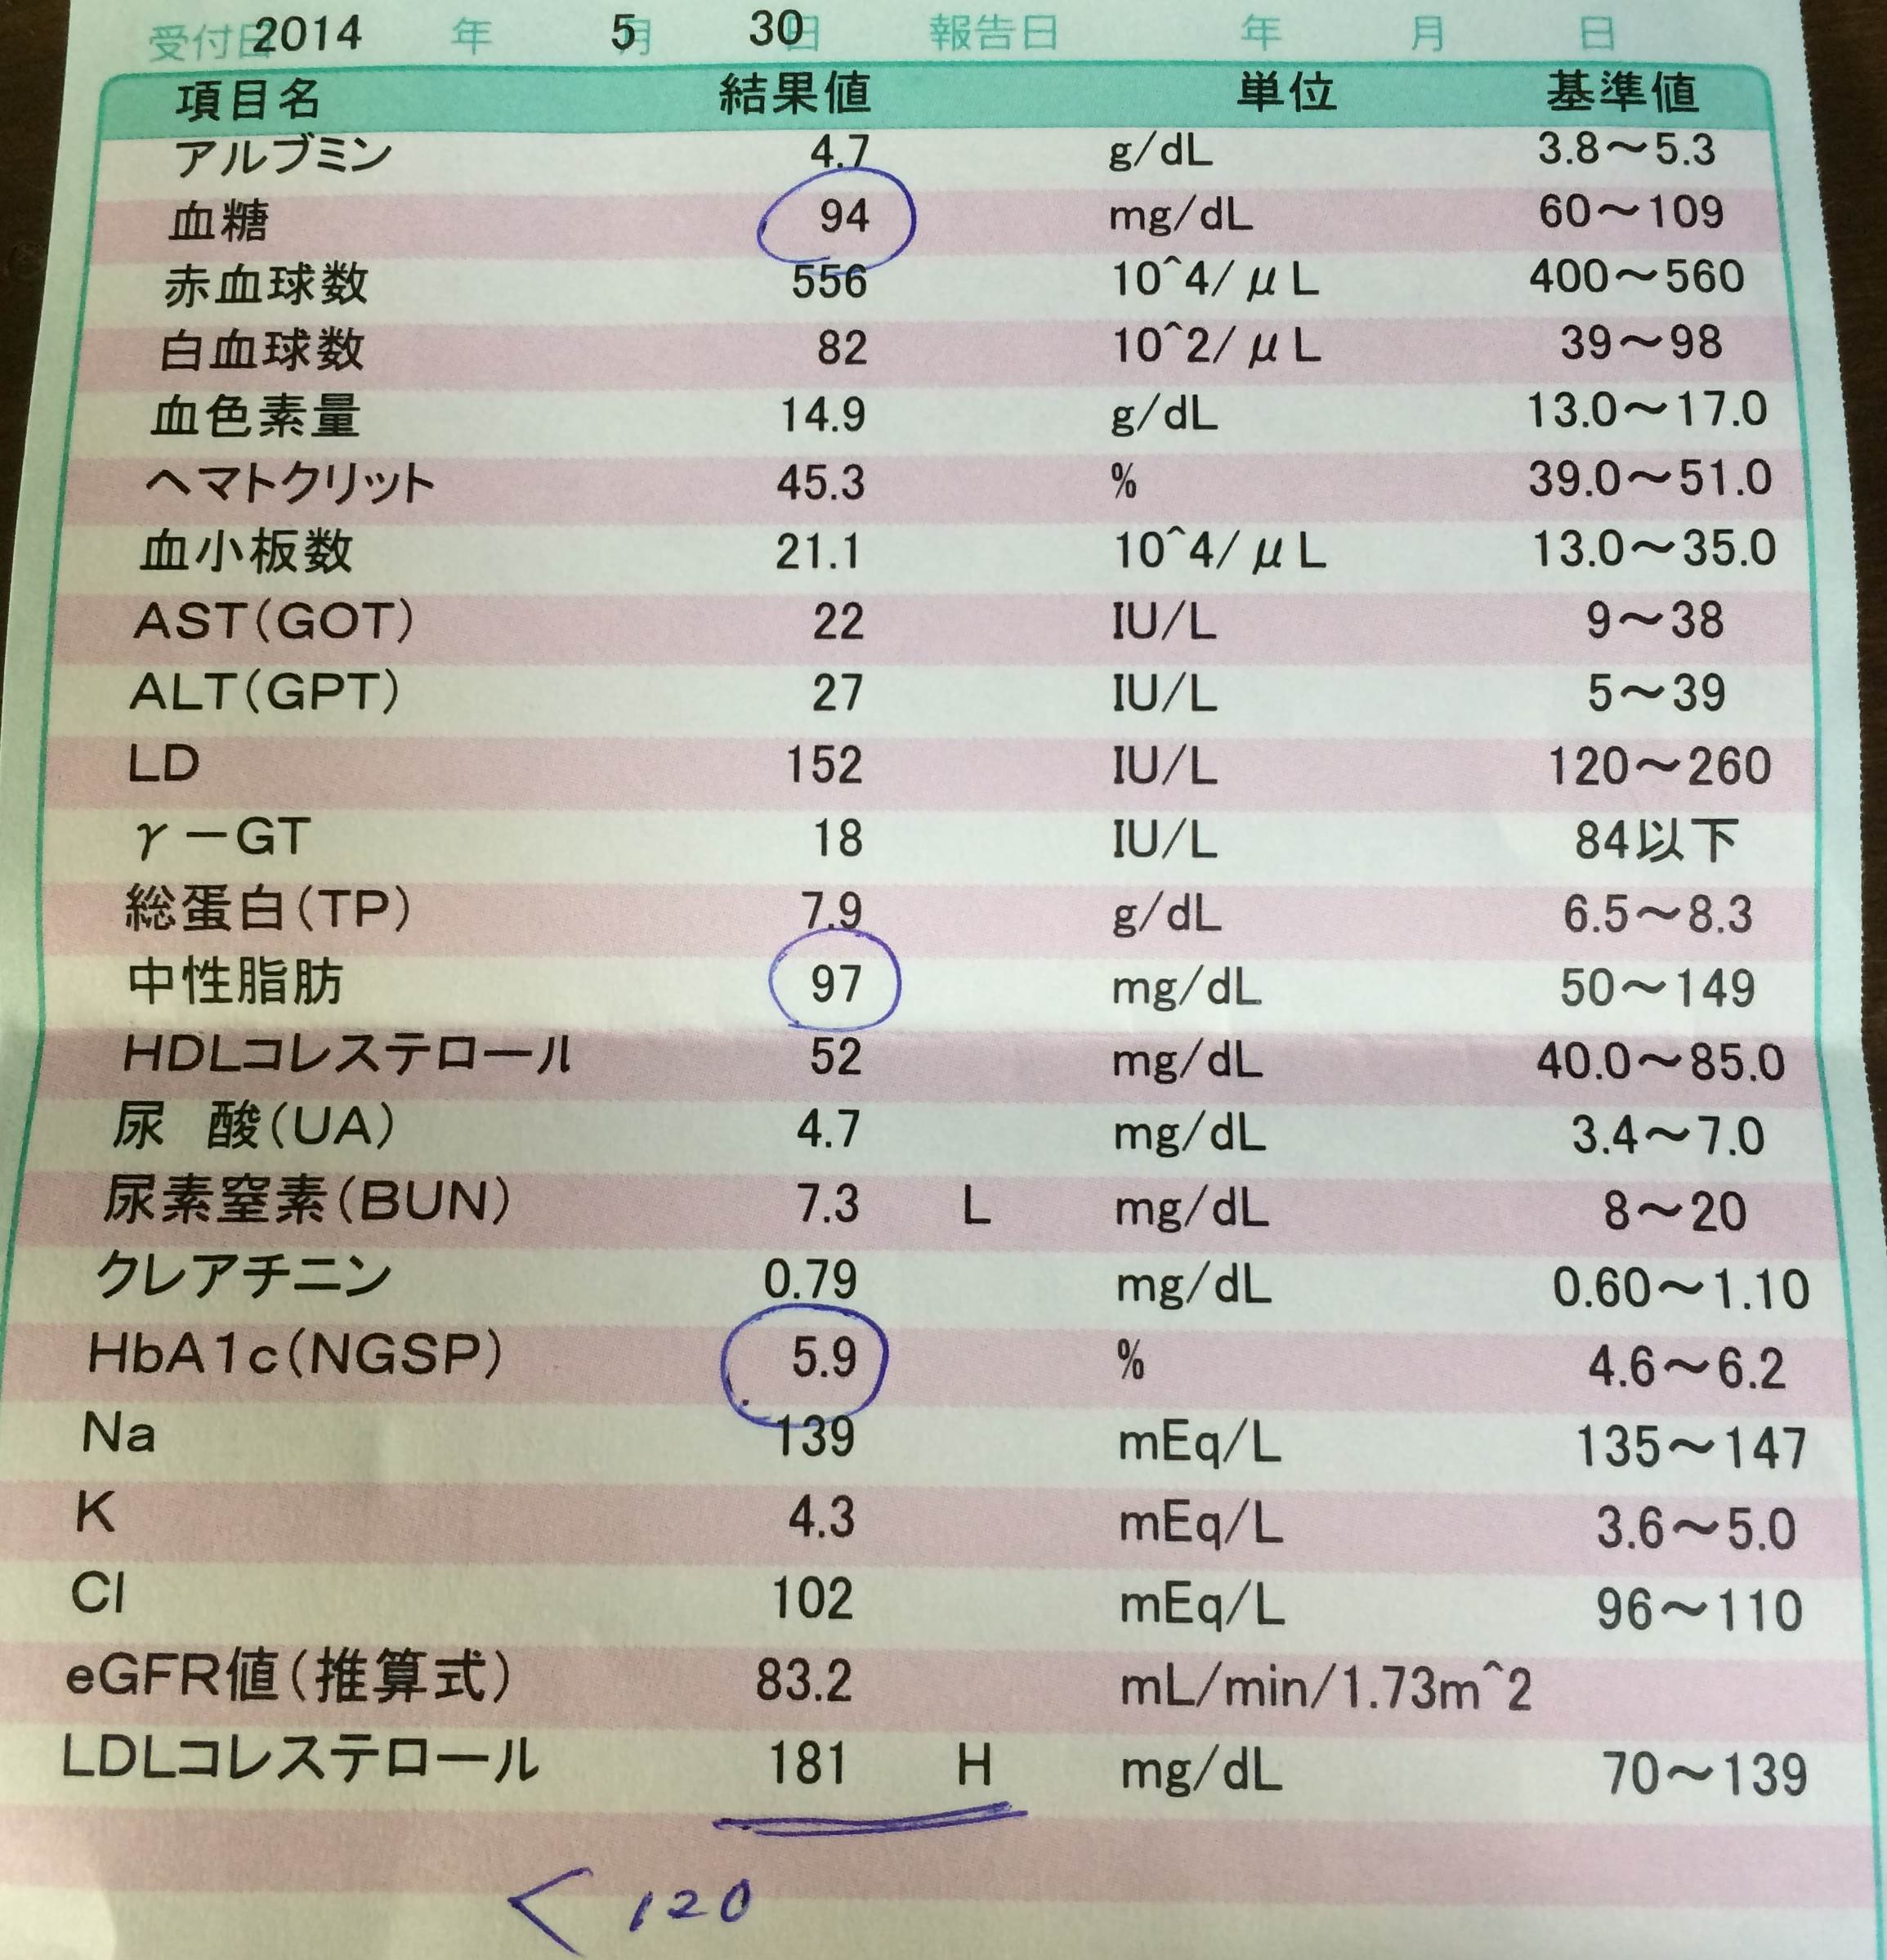 受付日 2014 年 5 月 30 日 報告日 年 月 日
項目名 結果値 単位 基準値
アルブミン 4.7 g/dL 3.8～5.3
血糖 94 mg/dL 60～109
赤血球数 556 10^4/μL 400～560
白血球数 82 10^2/μL 39～98
血色素量 14.9 g/dL 13.0～17.0
ヘマトクリット 45.3 % 39.0～51.0
血小板数 21.1 10^4/μL 13.0～35.0
AST(GOT) 22 IU/L 9～38
ALT(GPT) 27 IU/L 5～39
LD 152 IU/L 120～260
γ－GT 18 IU/L 84以下
総蛋白(TP) 7.9 g/dL 6.5～8.3
中性脂肪 97 mg/dL 50～149
HDLコレステロール 52 mg/dL 40.0～85.0
尿 酸(UA) 4.7 mg/dL 3.4～7.0
尿素窒素(BUN) 7.3 L mg/dL 8～20
クレアチニン 0.79 mg/dL 0.60～1.10
HbA1c(NGSP) 5.9 % 4.6～6.2
Na 139 mEq/L 135～147
K 4.3 mEq/L 3.6～5.0
Cl 102 mEq/L 96～110
eGFR値(推算式) 83.2 mL/min/1.73m^2
LDLコレステロール 181 H mg/dL 70～139
< 120